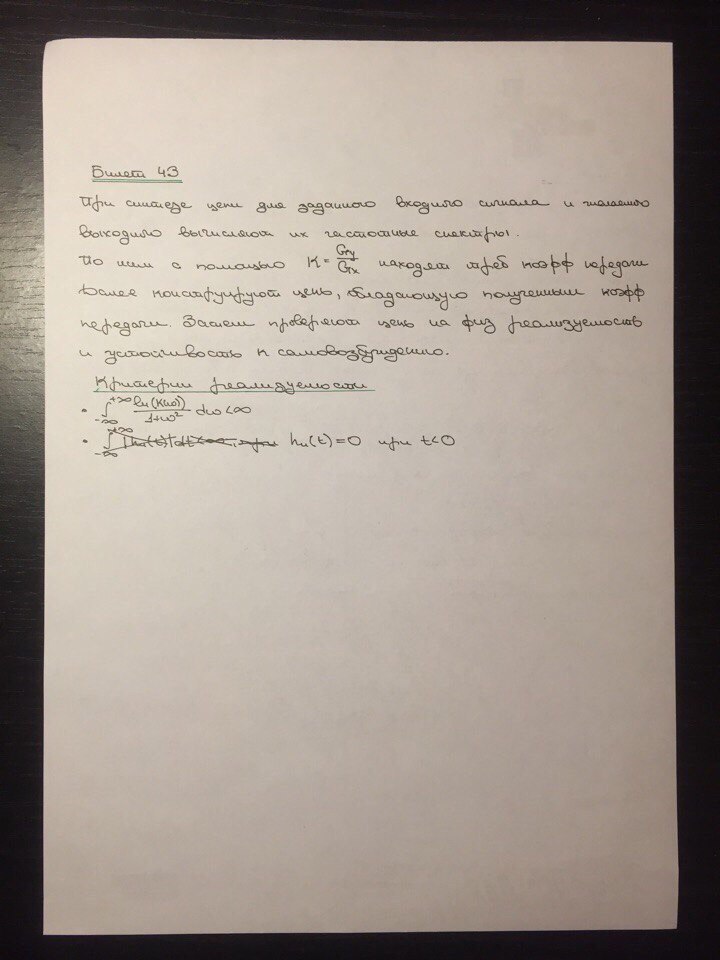 Билет 43
При синтезе цепи для заданного входного сигнала и желаемого
выходного вычисляют их частотные спектры.
По ним с помощью K = Gy/Gx находят треб коэфф передачи
Далее конструируют цепь, обладающую полученным коэфф
передачи. Затем проверяют цепь на физ реализуемость
и устойчивость к самовозбуждению.
Критерии реализуемости
• ∫_{-∞}^{+∞} ln(K(ω))/(1+ω²) dω < ∞
• ∫_{-∞}^{+∞} |hи(t)|dt<∞, при hи(t)=0 при t<0